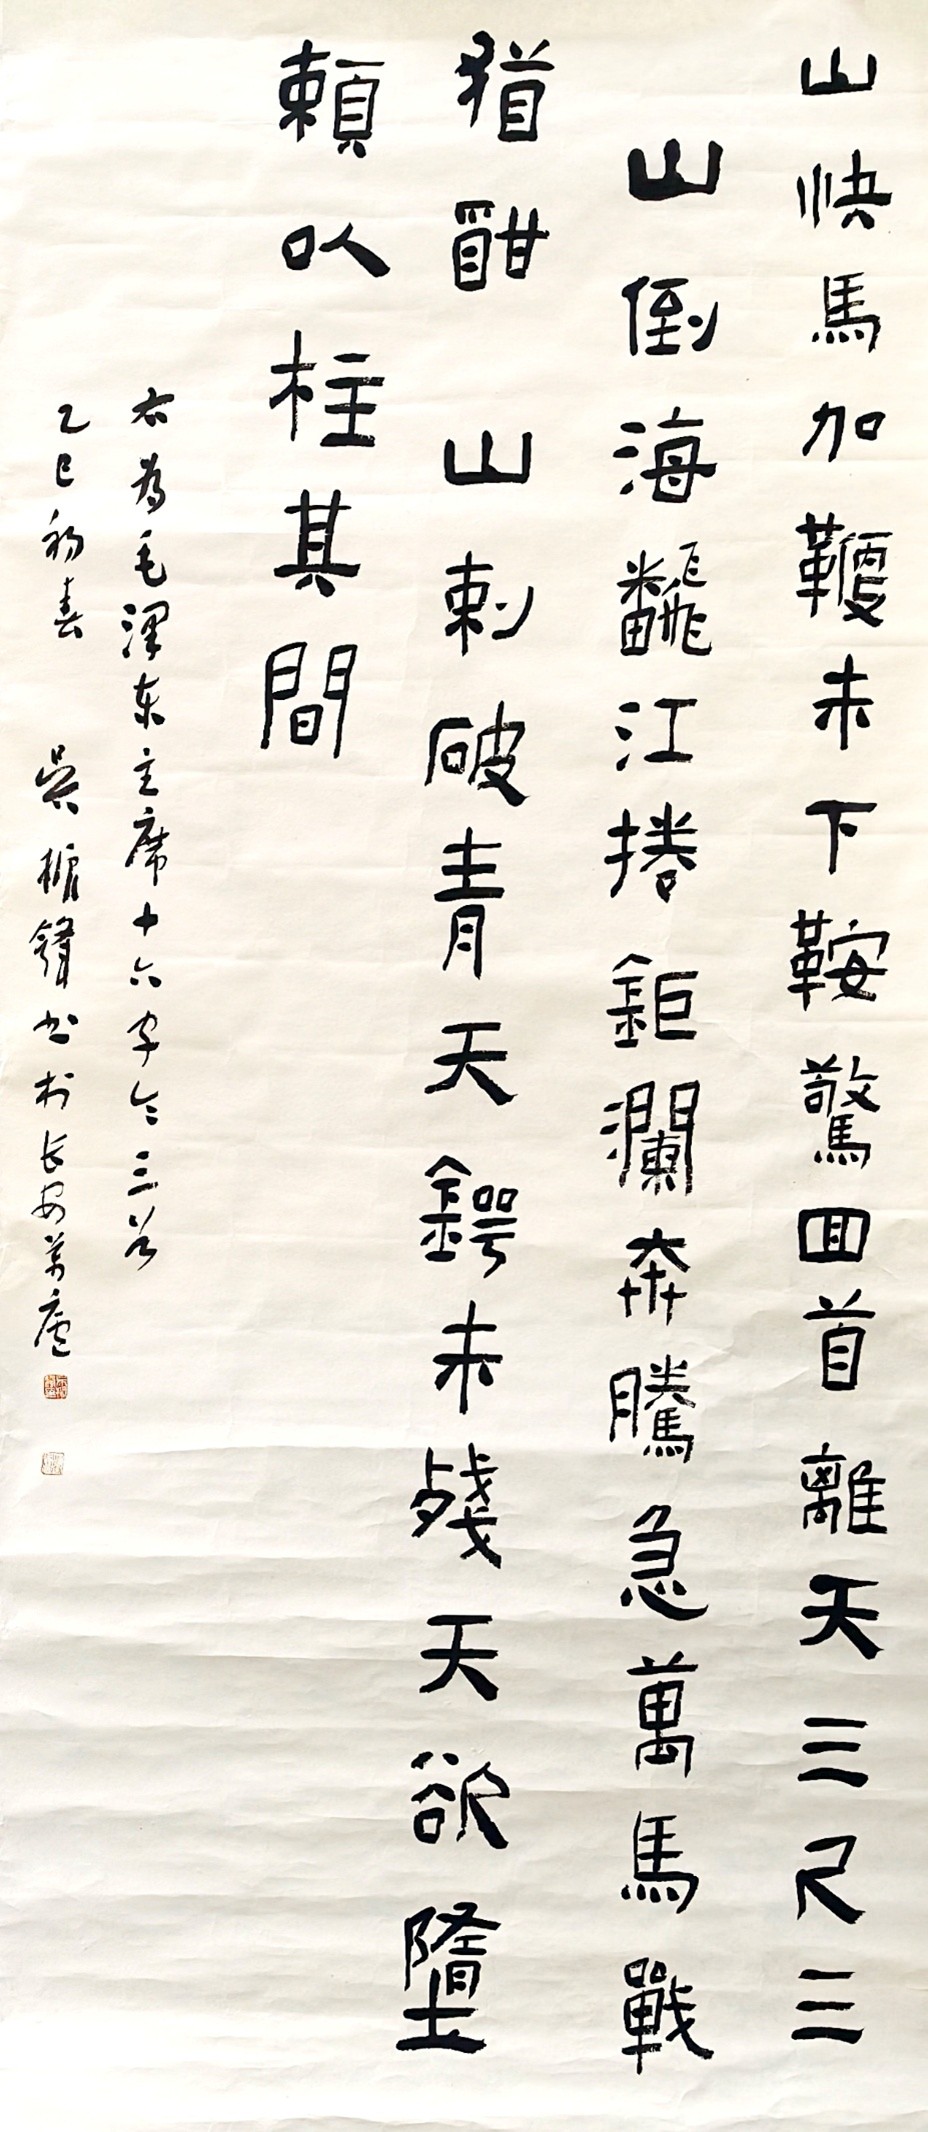 山快馬加鞭未下鞍驚回首離天三尺三
山倒海飜江捲鉅瀾奔騰急萬馬戰
猶酣山刺破青天鍔未殘天欲墮
賴以柱其間
右為毛澤东主席十六字令三首
乙巳初春 吴櫖鋒书於长安萬廬